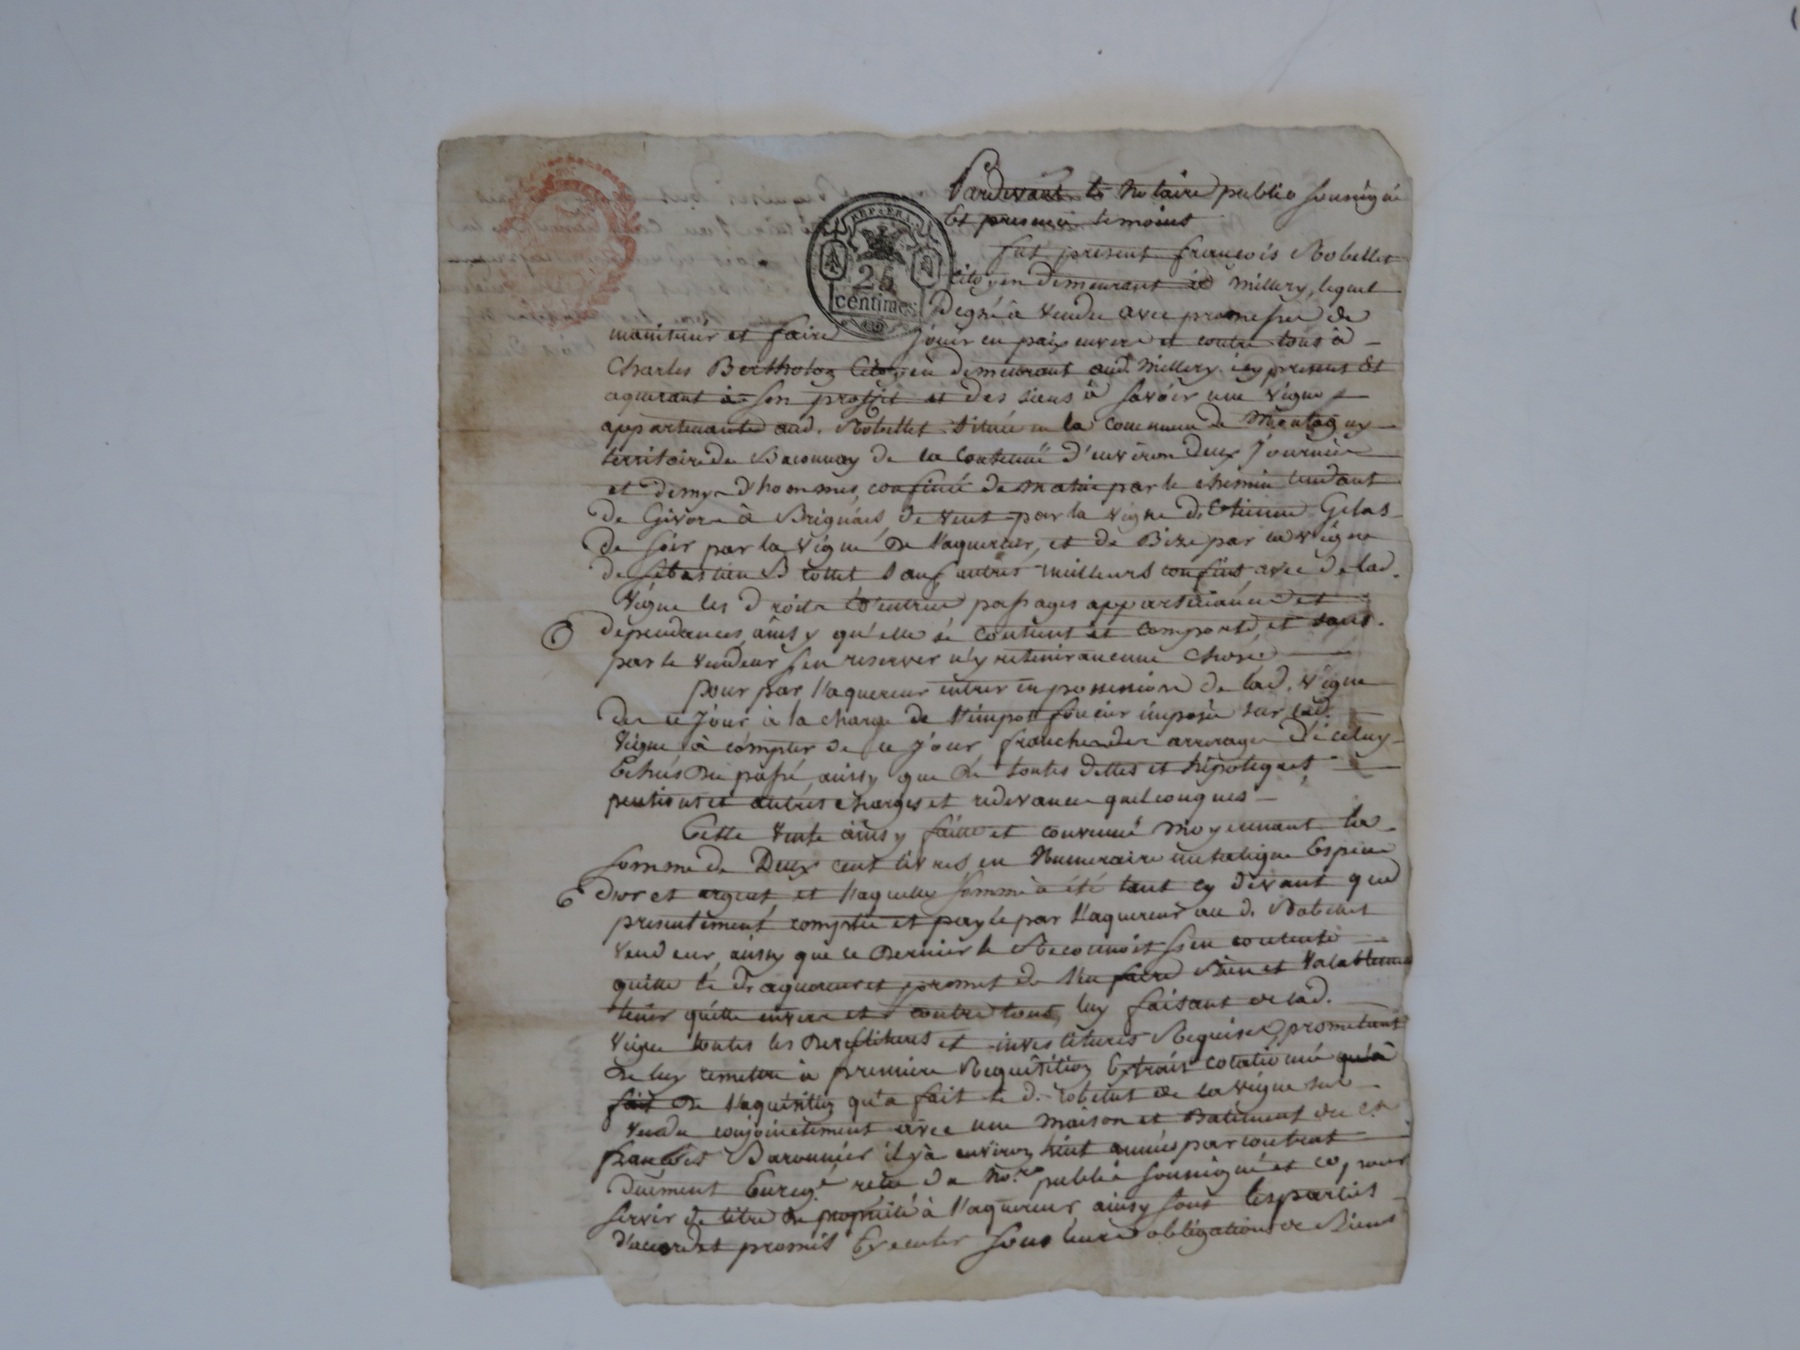 REP. FRA.
25
centimes
Pardevant le Notaire public soussigné
Et presens temoins
fut present françois Robellet
Citoyen demeurant à Millery, lequel
De gré à Vendu avec promesse de
maintenir et faire jouir en paix envers et contre tous à
Charles Bertholon Citoyen demeurant aud. Millery icy present Et
aquerant à son proffit et des siens à savoir une Vigne
appartenante aud. Robellet Située en la commune de Montagny
territoire de Baconnay de la Contenue d'environ Deux Journées
et demy d'hommes, confinée de matin par le chemin tendant
de Givors à Brignais, de Vent par la Vigne d'Etienne Gelas
de soir par la Vigne de l'aquereur, et de Bize par la Vigne
de Sebastien Blottet sauf autres meilleurs confins avec de lad.
Vigne les droits d'entrée passages appartenances et
dependances, ainsy qu'elle se contient et comporte, et sans
par le Vendeur s'en reserver n'y retenir aucune Chose
pour par l'aquereur entrer en possession de lad. Vigne
des ce Jour à la charge de l'impot foncier imposée sur lad.
Vigne à compter de ce Jour franche des arrerages d'iceluy
Echus du passé, ainsy que de toutes dettes et hipoteques
pentions et autres charges et redevances quelconques
Cette Vente ainsy faitte et convenue moyennant la
somme de Deux cent livres en Numeraire metalique Espece
d'or et argent, et laquelle somme à été tant cy devant que
presentement comptée et payée par l'aquereur au d. Robellet
Vendeur, ainsy que ce Dernier le Reconnoit s'en contente
quitte le d. aquereur et promet de l'en faire Bien et Valablement
tenir quitte envers et contre tous, luy faisant de lad.
Vigne toutes les Devestitures et investitures Requises, prometant
de luy remettre à premiere Requisition Extrait colationné qu'à
fait de l'aquisition qu'a fait le d. Robellet de la Vigne sus
Vendue conjointement avec une maison et Batiment du Cn.
françois Baronnier il y à environ huit années par contrat
duement Enregé. reçu du Nore. public soussigné et ce, pour
servir de titre de propriété à l'aquereur ainsy sont les parties
d'accord et promis Executer sous leurs obligations de Biens